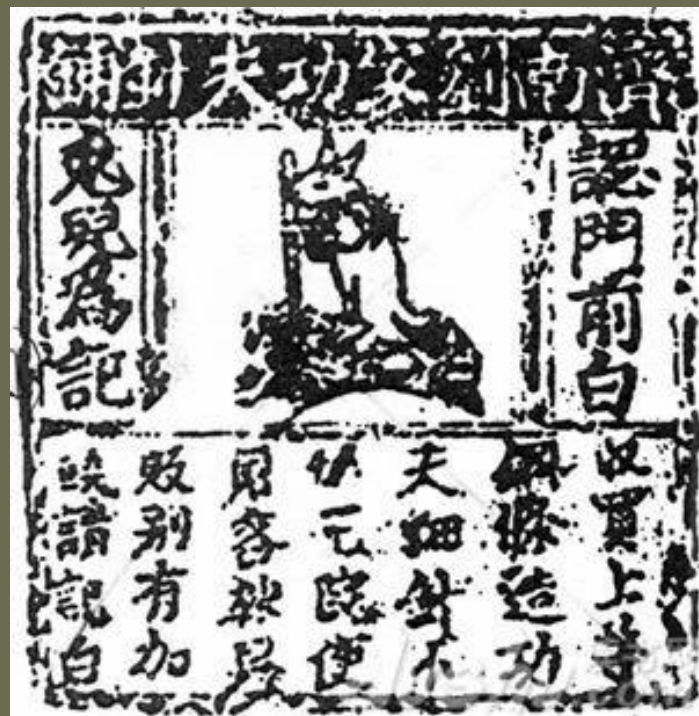 濟南劉家功夫針鋪
認門前白
兔兒爲記
收買上等
鋼條造功
夫細針不
悮宅院使
用客轉爲
販別有加
饒請記白